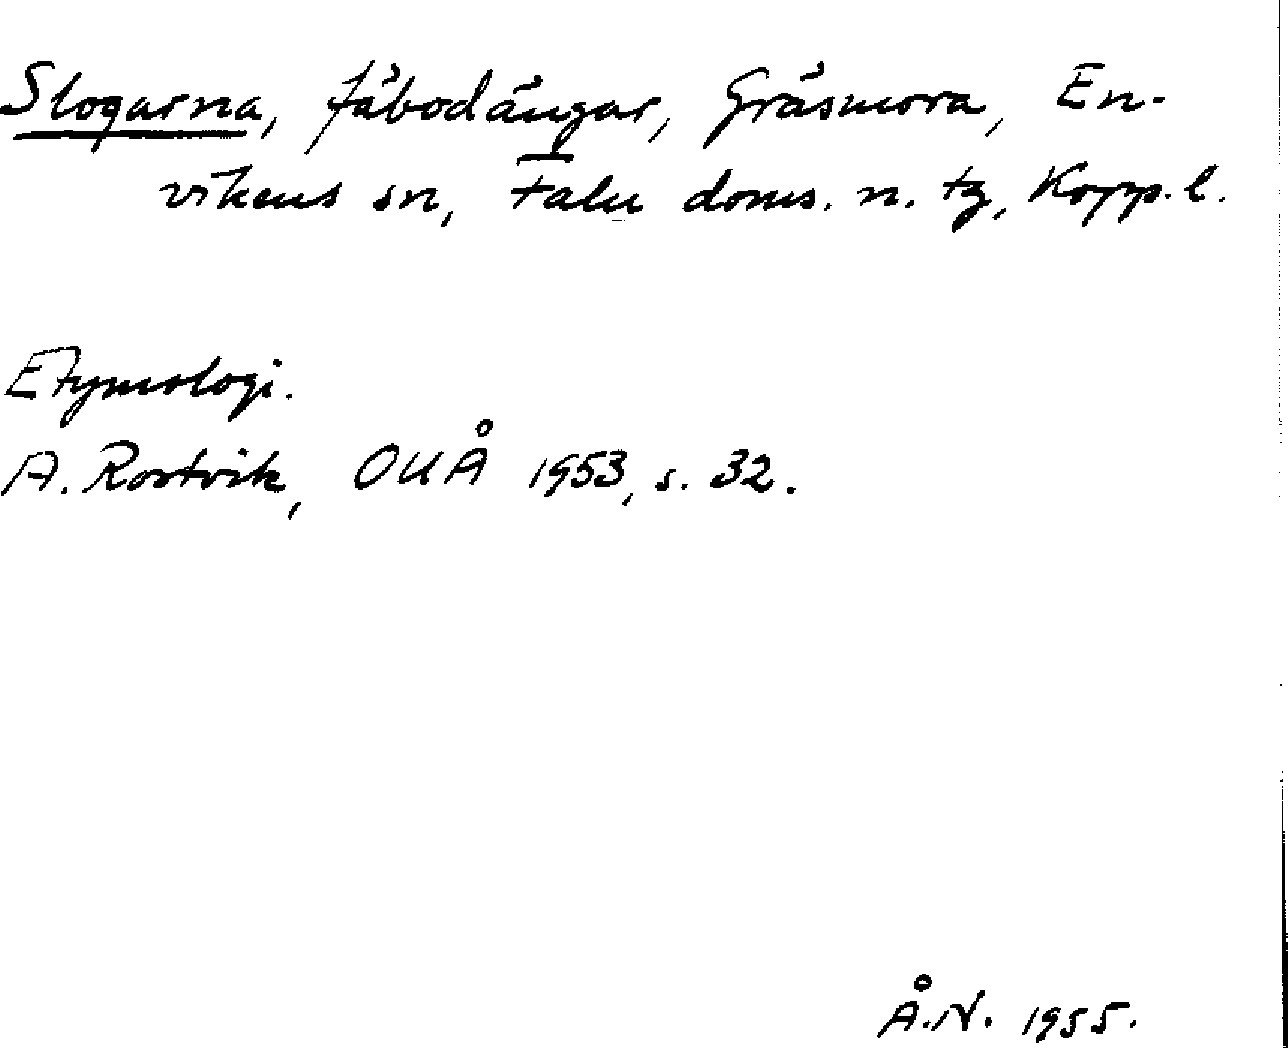 Slogarna, fäbodängar, Gräsmora, En-
vikens sn, Falu doms. n. tg, Kopp. l.
Etymologi.
A. Rostvik, OUÅ 1953, s. 32.
Å.N. 1955.